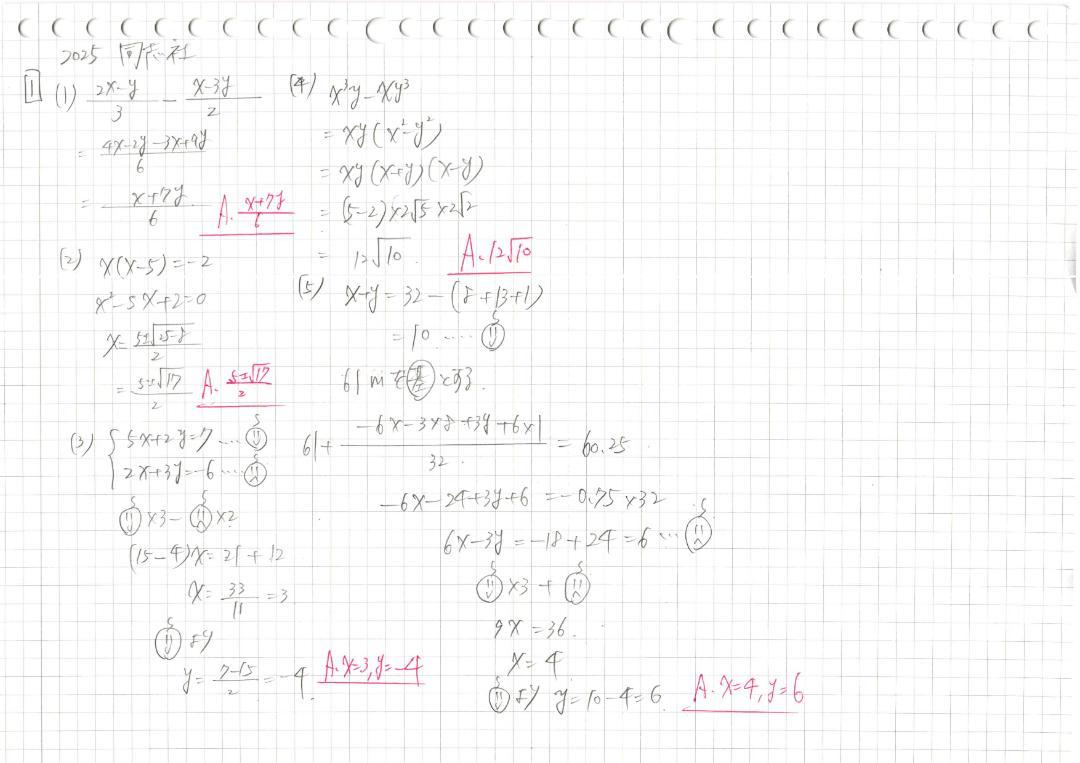 2025 同志社
1
(1) (2x-y)/3 - (x-3y)/2
= (4x-2y-3x+9y)/6
= (x+7y)/6
A. (x+7y)/6
(2) x(x-5)=-2
x²-5x+2=0
x=(5±√(25-8))/2
=(5±√17)/2
A. (5±√17)/2
(3) { 5x+2y=7 ....
2x+3y=-6 ....
×3- ×2
(15-4)x=21+12
x=33/11=3
より
y=(7-15)/2=-4
A. x=3, y=-4
(4) x³y-xy³
=xy(x²-y²)
=xy(x+y)(x-y)
=(5-2)×2√5×2√2
=12√10
A. 12√10
(5) x+y=32-(8+13+1)
=10 ....
61mを基とする.
61+(-6x-3×8+3y+6×1)/32=60.25
-6x-24+3y+6=-0.75×32
6x-3y=-18+24=6 ...
×3+
9x=36.
x=4
より y=10-4=6
A. x=4, y=6